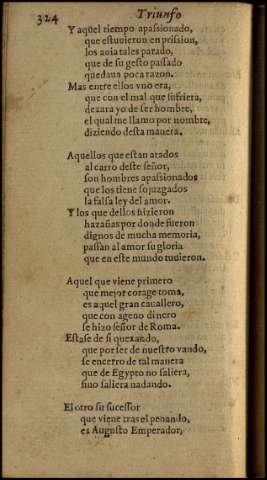 324 Triunfo
Y aquel tiempo apassionado,
que estuvieron en prission,
los auia tales parado,
que de su gesto passado
quedaua poca razon.
Mas entre ellos vno era,
que con el mal que sufriera,
dexara yo de ser hombre,
el qual me llamo por nombre,
diziendo desta manera.
Aquellos que estan atados
al carro deste señor,
son hombres apassionados
que los tiene sojuzgados
la falsa ley del amor.
Y los que dellos hizieron
hazañas por donde fueron
dignos de mucha memoria,
passan al amor su gloria
que en este mundo tuuieron.
Aquel que viene primero
que mejor corage toma,
es aquel gran cauallero,
que con ageno dinero
se hizo señor de Roma.
Estase de si quexando,
que por ser de nuestro vando,
se encerro de tal manera
que de Egypto no saliera,
sino saliera nadando.
El otro su sucessor
que viene tras el penando,
es Augusto Emperador,